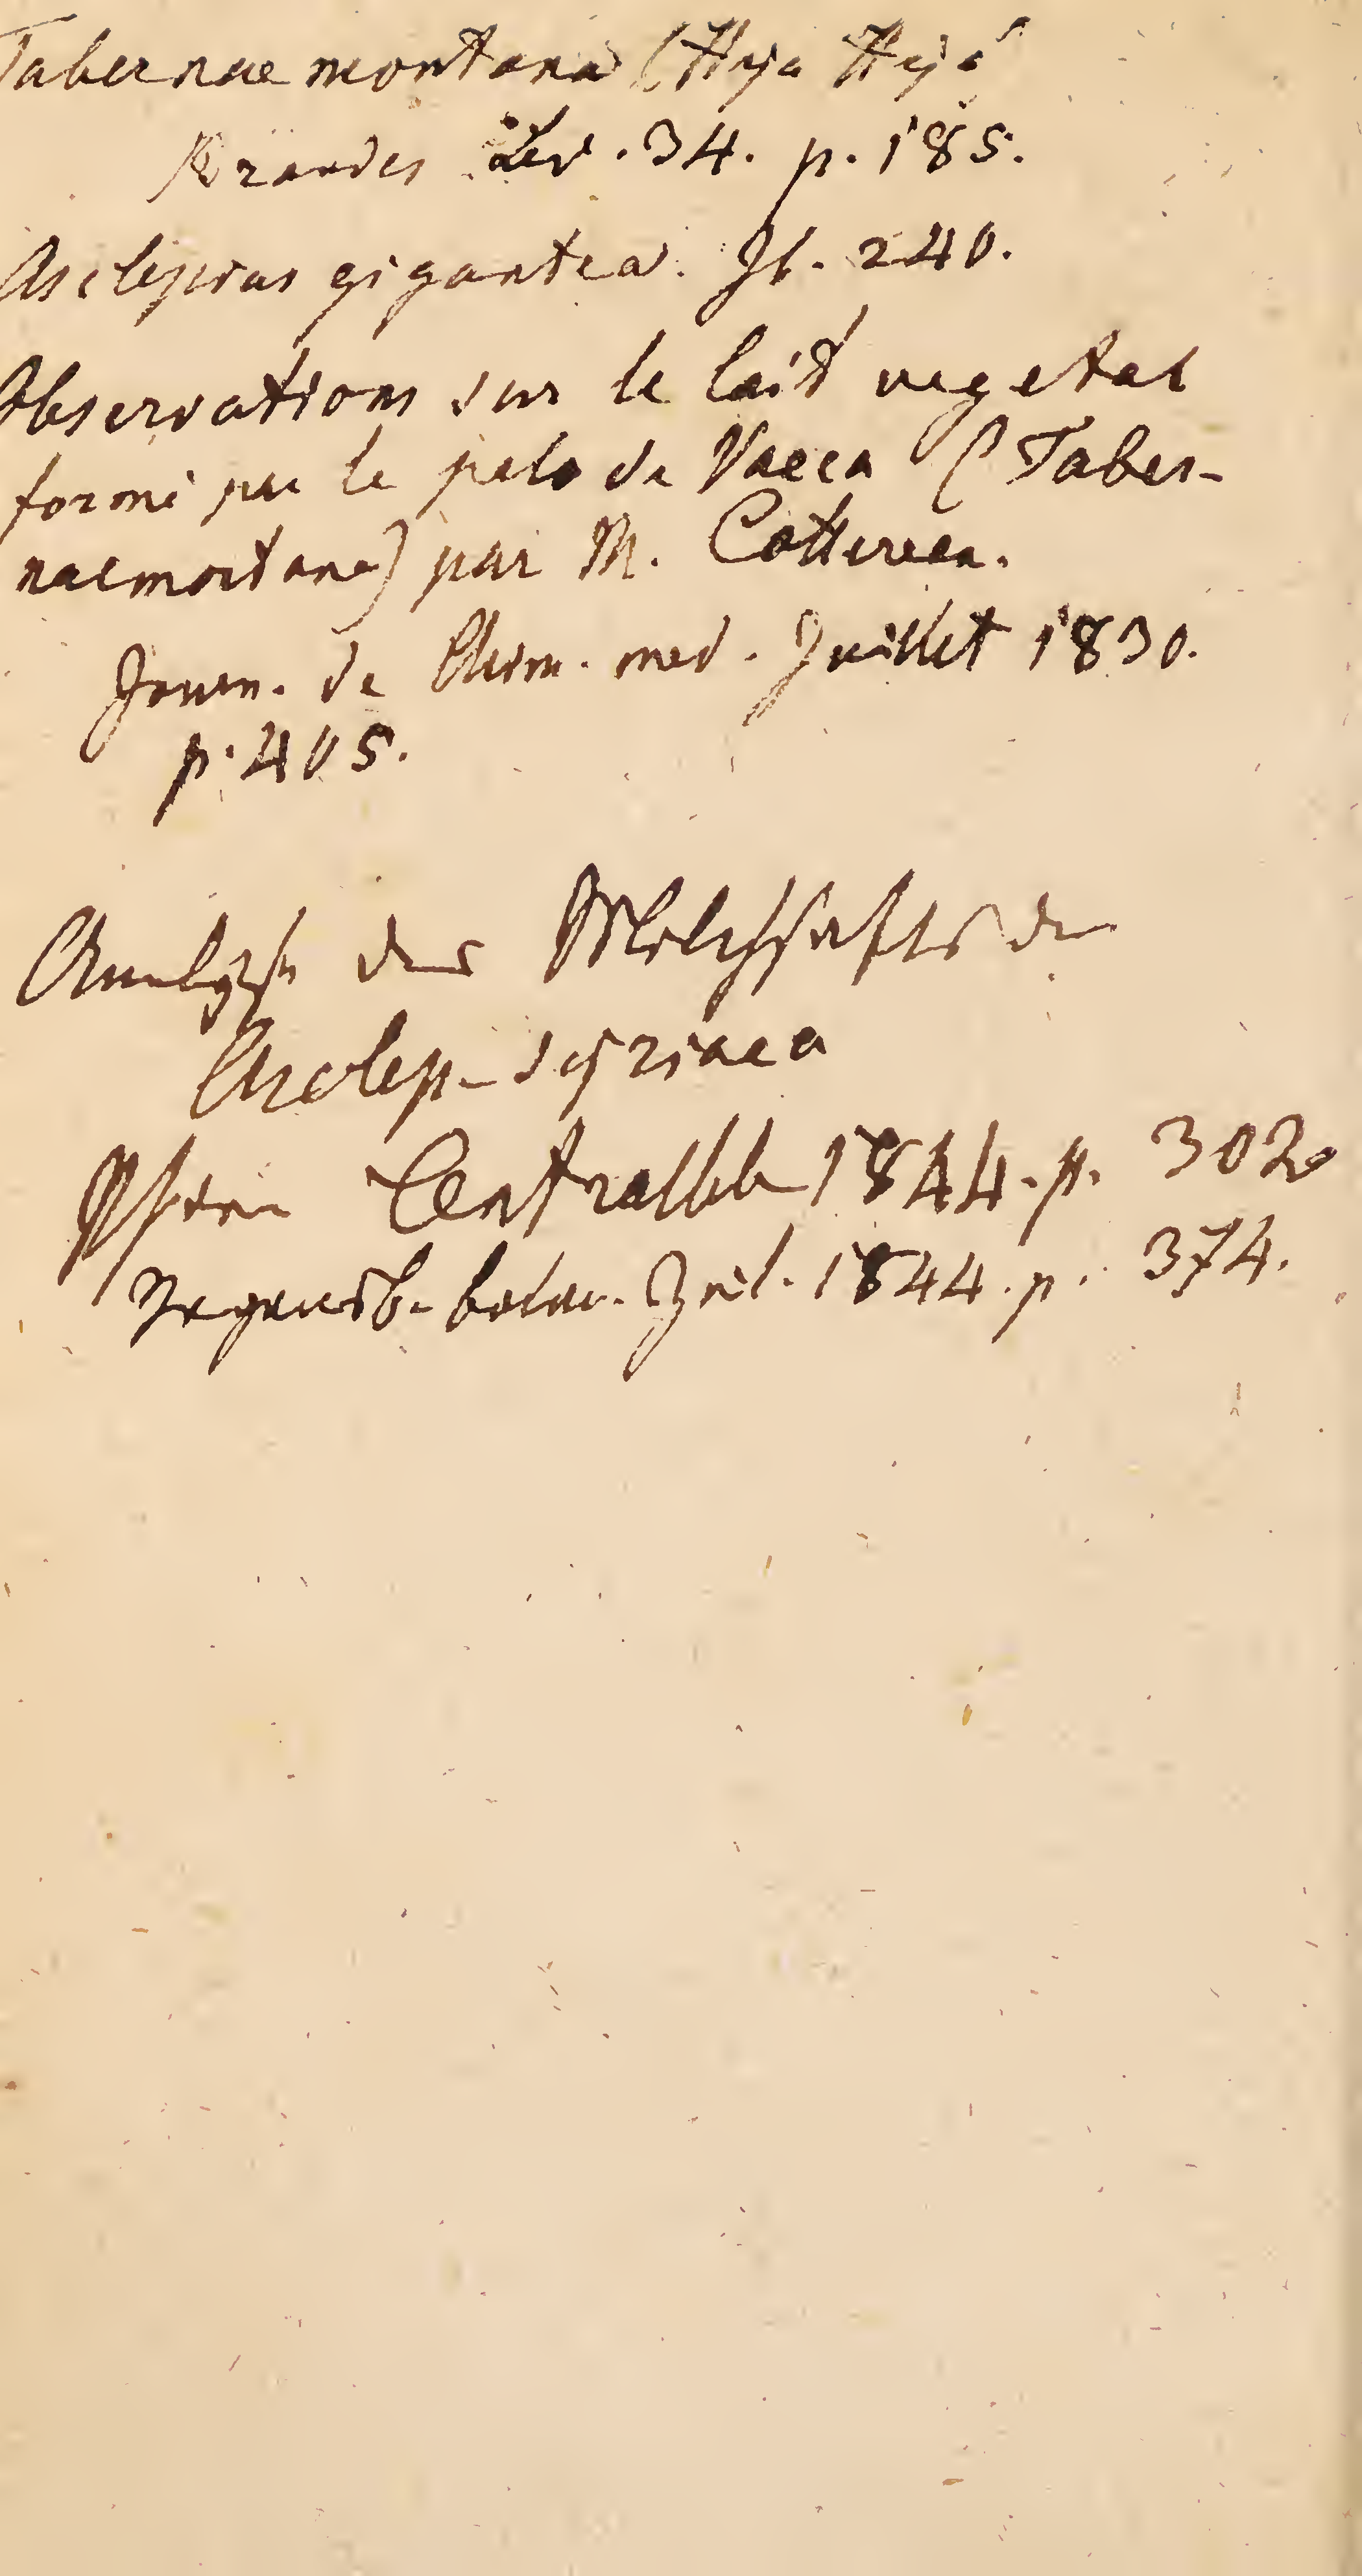 Tabernaemontana (Hya Hya
Brandes Lex. 34. p. 185.
Asclepias gigantea. Ib. 240.
Observations sur le lait vegetal
formé par le palo de Vacca (Taber-
naemontana) par M. Cottereau.
Journ. de Chim. med. Juillet 1830.
p. 405.
Analyse des Milchsaftes der
Asclep. syriaca
Pharm. Centralbl. 1844. p. 302.
Regensb. botan. Zeit. 1844. p. 374.